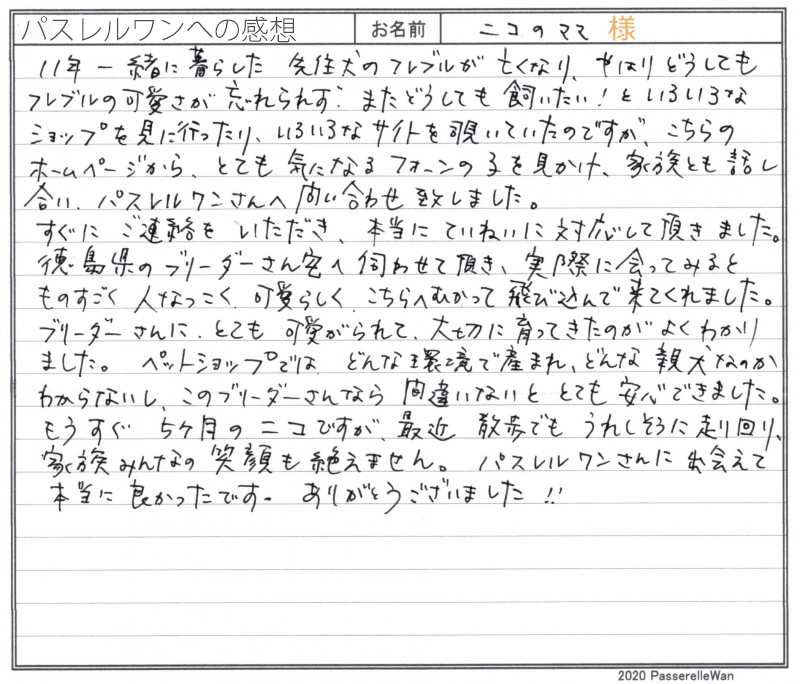 パスレルワンへの感想 お名前 ニコのママ 様
11年一緒に暮らした 先住犬のフレブルが 亡くなり、やはりどうしても
フレブルの可愛さが忘れられず、またどうしても飼いたい！といろいろな
ショップを見に行ったり、いろいろなサイトを覗いていたのですが、こちらの
ホームページから、とても気になるフォーンの子を見かけ、家族とも話し
合い、パスレルワンさんへ問い合わせ致しました。
すぐにご連絡をいただき、本当にていねいに対応して頂きました。
徳島県のブリーダーさん宅へ伺わせて頂き、実際に会ってみると
ものすごく人なつっこく、可愛らしく、こちらへむかって飛び込んで来てくれました。
ブリーダーさんに、とても可愛がられて、大切に育ってきたのがよくわかり
ました。ペットショップでは どんな環境で産まれ、どんな親犬なのか
わからないし、このブリーダーさんなら間違いないととても安心できました。
もうすぐ5ケ月のニコですが、最近 散歩でもうれしそうに走り回り、
家族みんなの笑顔も絶えません。パスレルワンさんに出会えて
本当に良かったです。ありがとうございました!!
2020 PasserelleWan